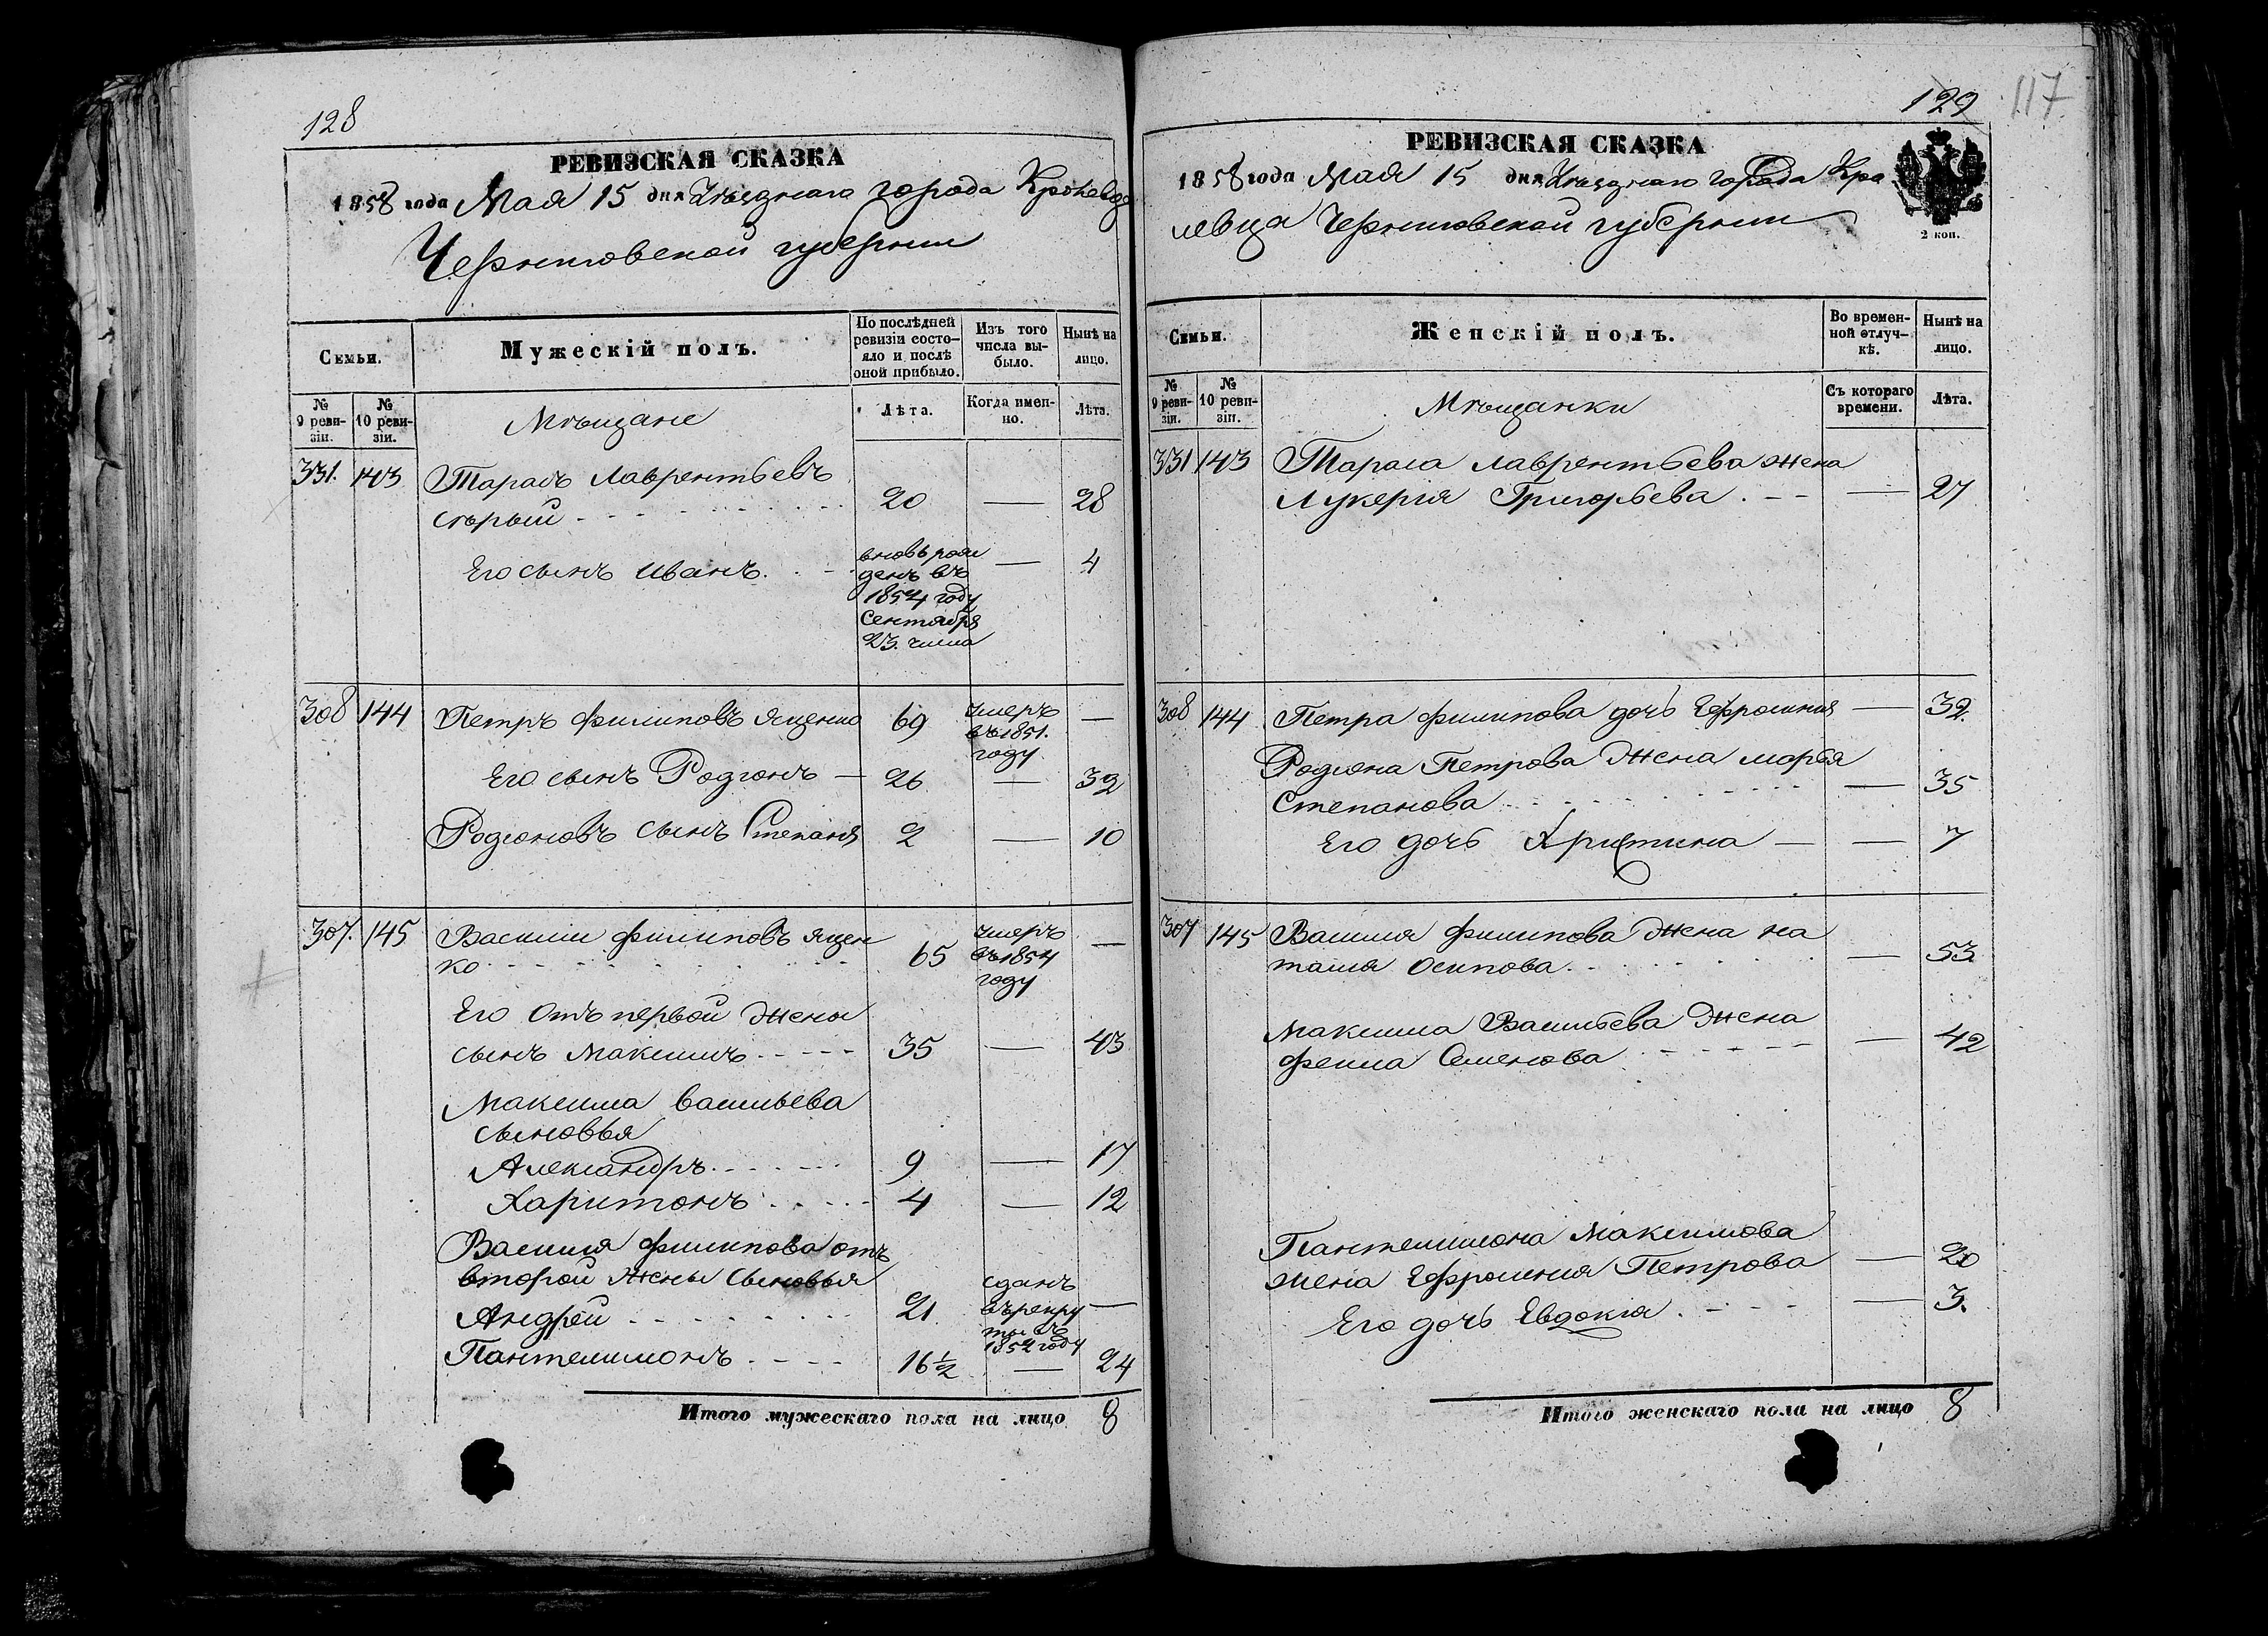 128
РЕВИЗСКАЯ СКАЗКА
1858 года Мая 15 дня Уѣзднаго города Кролевца
Черниговской губернии
Семьи.
Мужескій полъ.
По послѣдней ревизіи состояло и послѣ оной прибыло.
Изъ того числа выбыло.
Нынѣ на лицо.
№ 9 ревизіи.
№ 10 ревизіи.
Мѣщане
Лѣта.
Когда именно.
Лѣта.
331. 143 Тарасъ Лаврентьевъ
Сѣрый 20 — 28
Его сынъ Иванъ. вновь рож
денъ въ — 4
1854 году
Сентября
23. числа
308 144 Петръ Филиповъ Яценко 69 умеръ —
въ 1851.
году
Его сынъ Родіонъ — 26 — 32
Родіоновъ сынъ Степанъ 2 — 10
307. 145 Василий Филиповъ Яцен
ко 65 умеръ —
въ 1854
году
Его Отъ первой жены
сынъ Максимъ 35 — 43
Максима Васильева
сыновья
Александръ 9 — 17
Харитонъ 4 — 12
Василия Филипова отъ
второй жены Сыновья
Андрей 21 сданъ —
въ рекру
ты въ
1854 году
Пантелимонъ 16½ — 24
Итого мужескаго пола на лицо 8
129
117
РЕВИЗСКАЯ СКАЗКА
1858 года Мая 15 дня Уѣзднаго города Кро
левца Черниговской губернии
2 коп.
Семьи.
Женскій полъ.
Во временной отлучкѣ.
Нынѣ на лицо.
№ 9 ревизіи.
№ 10 ревизіи.
Мѣщанки
Съ котораго времени.
Лѣта.
331 143 Тараса Лаврентьева жена
Лукерия Григорьева — 27
308 144 Петра Филипова дочь Ефросиния — 32
Родиона Петрова жена Марья
Степанова — 35
Его дочь Христина — — 7
307 145 Василия Филипова жена На
талия Осипова — 53
Максима Васильева жена
Фекла Семенова — 42
Пантелимона Максимова
жена Ефросиния Петрова — 20
Его дочь Евдокия — 3.
Итого женскаго пола на лицо 8